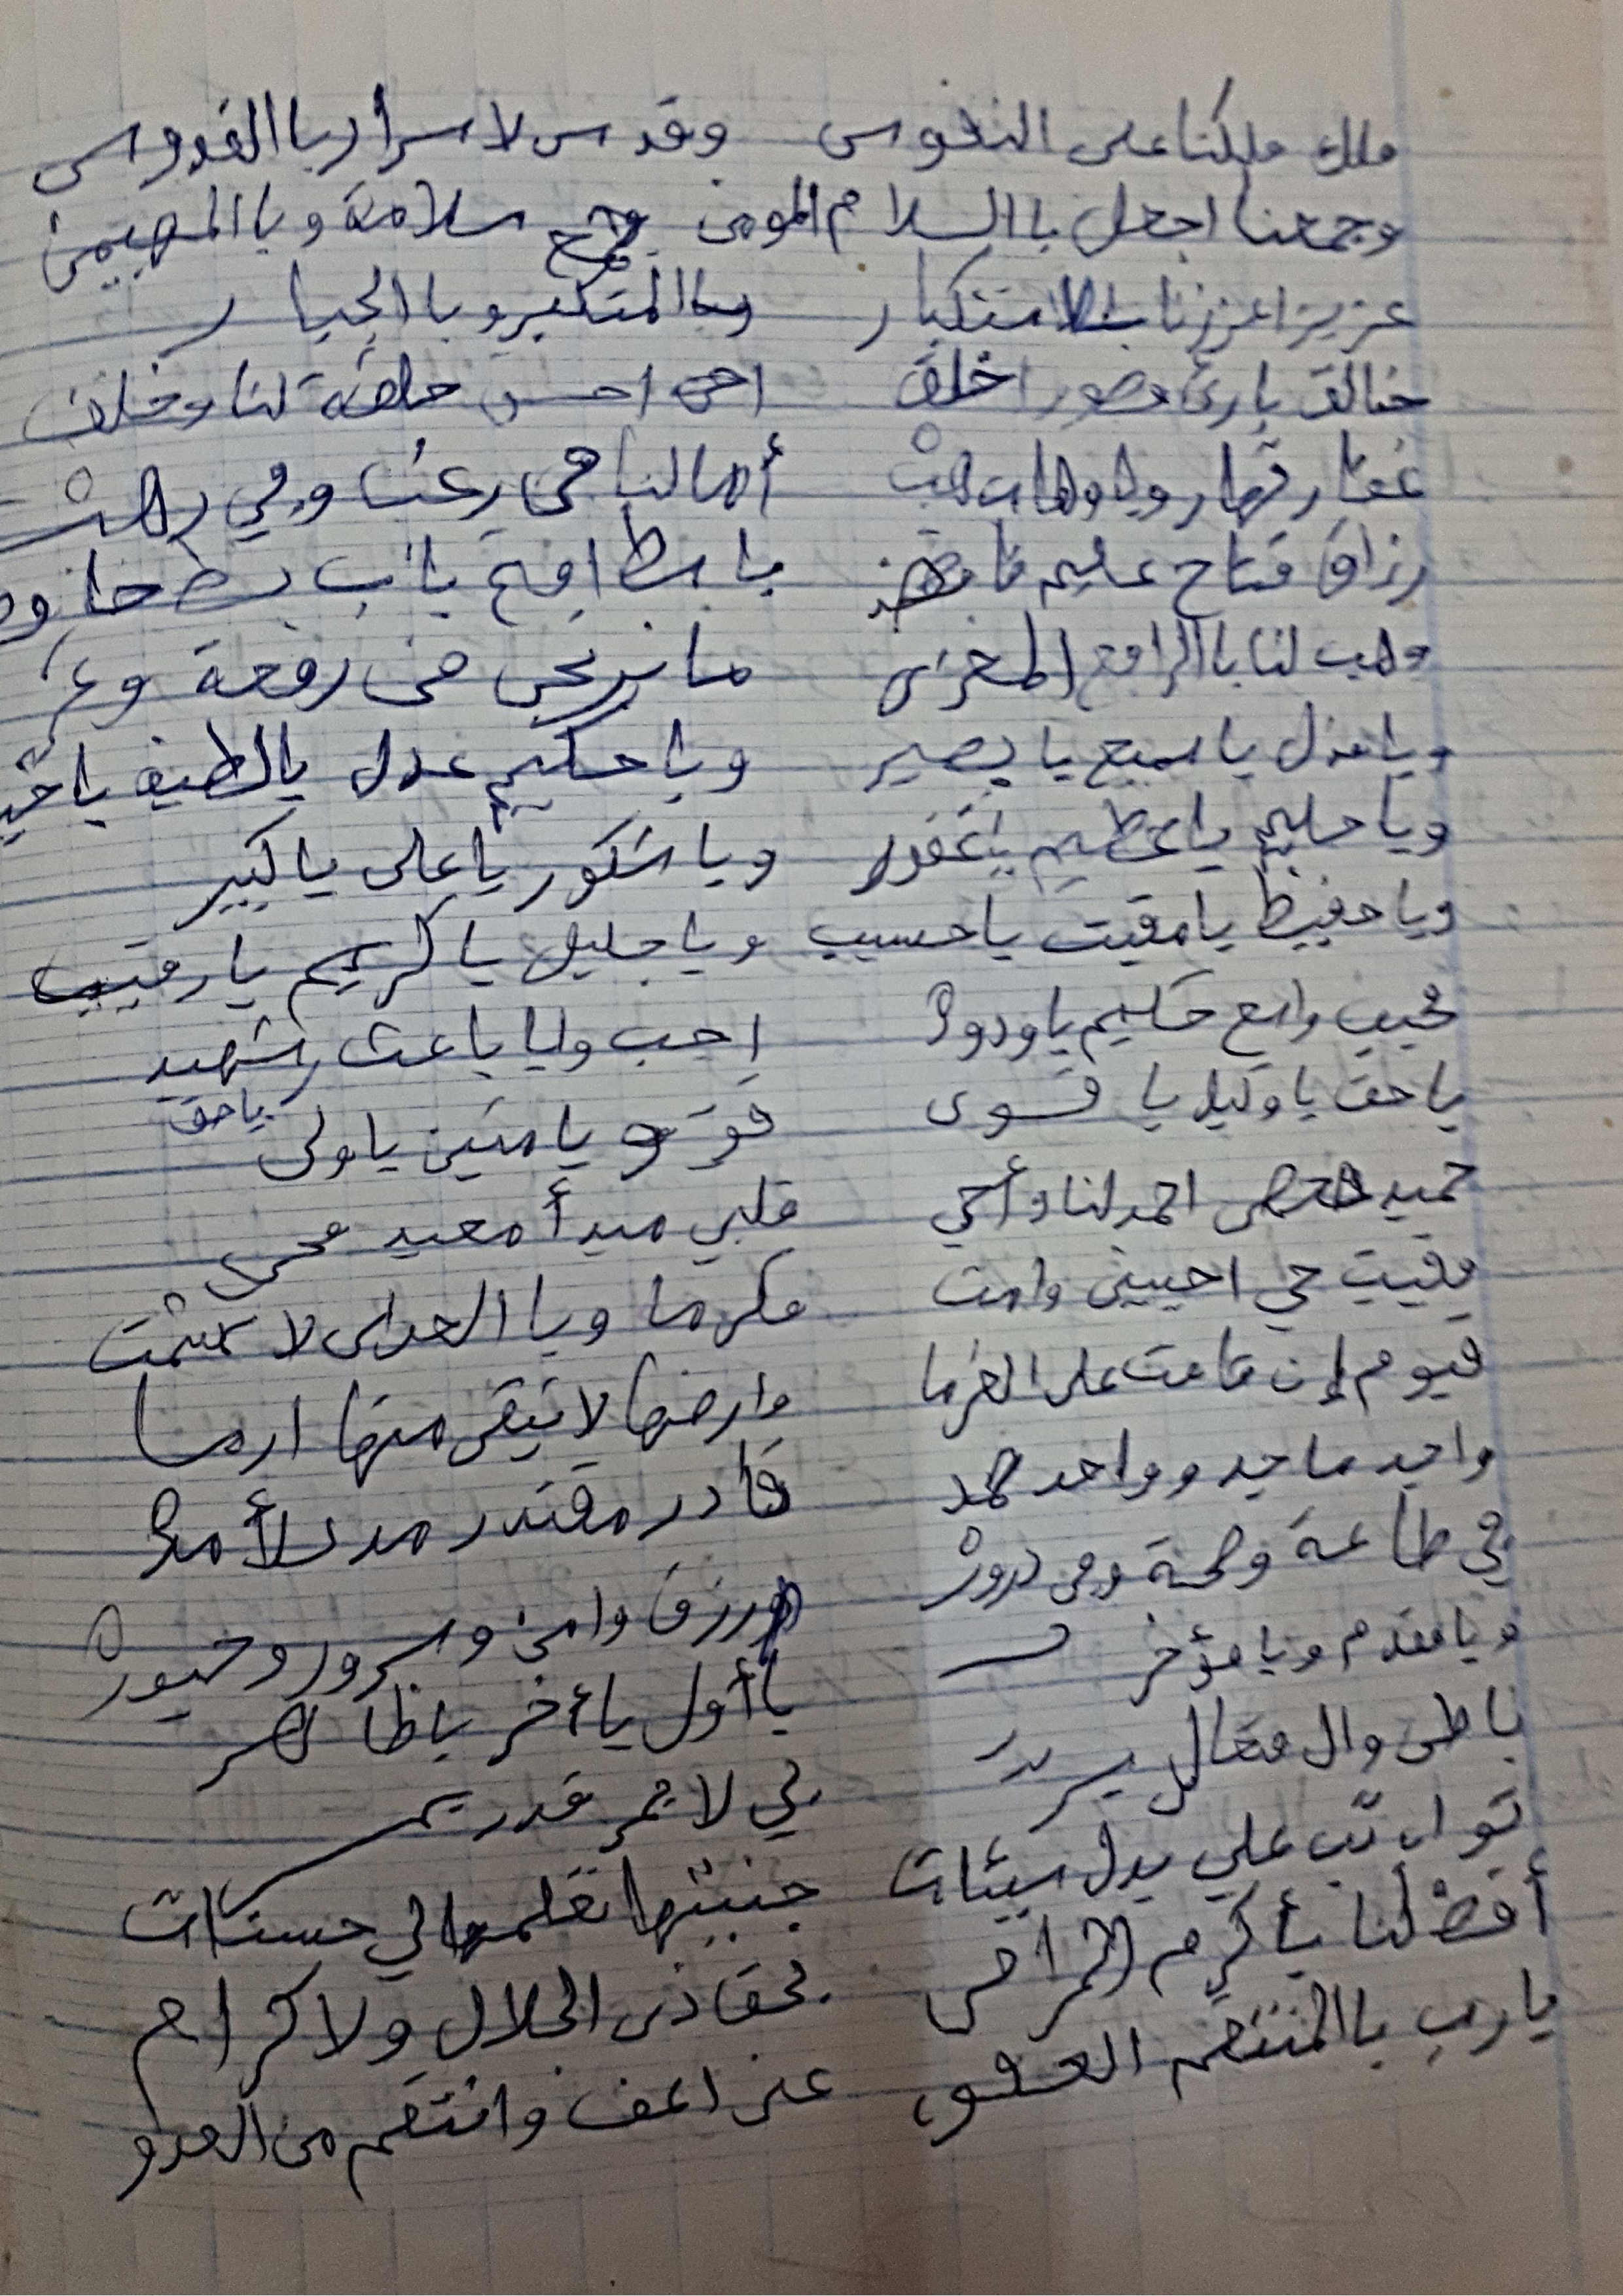 ملك ملكنا على النفوس وقدس لاسرار باالقدوس
وجمعنا اجعل باالسلام المومن سلامة وباالمهيمن
عزيز اعززنا وباالمتكبر وباالجبار
خالق بارئ مصور اخلق احسن خلقة لنا وخلق
غفار قهار ويا وهاب هب
رزاق فتاح عليم باسط افتح باب بسط
وهب لنا باالرافع المعز ما نرتجى من رفعة وعز
ويا مذل يا سميع يا بصير ويا حكيم عدل يا لطيف يا خبير
ويا حليم يا عظيم يا غفور ويا شكور يا على يا كبير
ويا حفيظ يا مقيت يا حسيب ويا جليل يا كريم يا رقيب
مجيب واسع حكيم يا ودود اجب ويا باعث شهيد
يا حق يا وكيل يا قوى قو يا متين يا ولى يا حق
حميد محصى احمد لنا وأحي قلبي مبدأ معيد محى
مميت حي احيينى وامت مكرما ويا العداى لا تشمت
قيوم إن قامت على الغرما وارضها لا تبقى منها ارما
واجد ماجد وواحد صمد قادر مقتدر مد لأمد
في طاعة وصحة ومن ورزق وامن وسرور وحبور
ويا مقدم ويا مؤخر يا أول يا أخر يا ظاهر
باطن وال متعال بر لي لا
تواب تب علي بدل سيئات جنيتها لي حسنات
أقض لنا يأكرم المرام بحقا ذى الجلال ولاكرام
يا رب باالمنتقم العفو عنى اعف وانتقم من العدو